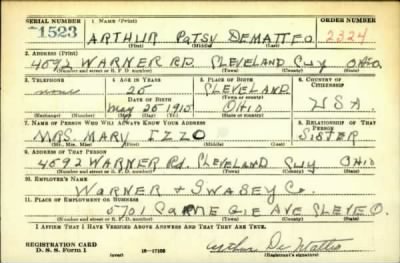 SERIAL NUMBER 1. NAME (Print) ORDER NUMBER
1523 ARTHUR PATSY DEMATTEO 2324
(First) (Middle) (Last)
2. ADDRESS (Print)
4592 WARNER RD. CLEVELAND CUY OHIO.
(Number and street or R. F. D. number) (Town) (County) (State)
3. TELEPHONE 4. AGE IN YEARS 5. PLACE OF BIRTH 6. COUNTRY OF CITIZENSHIP
none 25 CLEVELAND
DATE OF BIRTH (Town or county)
May 25 1915 OHIO U.S.A.
7. NAME OF PERSON WHO WILL ALWAYS KNOW YOUR ADDRESS 8. RELATIONSHIP OF THAT PERSON
MRS. MARY IZZO SISTER
(Mr., Mrs., Miss) (First) (Middle) (Last)
9. ADDRESS OF THAT PERSON
4592 WARNER Rd. CLEVELAND CUY OHIO
(Number and street or R. F. D. number) (Town) (County) (State)
10. EMPLOYER'S NAME
WARNER & SWASEY Co.
11. PLACE OF EMPLOYMENT OR BUSINESS
5701 CARNEGIE AVE CLEVE O.
(Number and street or R. F. D. number) (Town) (County) (State)
I AFFIRM THAT I HAVE VERIFIED ABOVE ANSWERS AND THAT THEY ARE TRUE.
REGISTRATION CARD
D. S. S. Form 1 Arthur De Matteo
(over) (Registrant's signature)